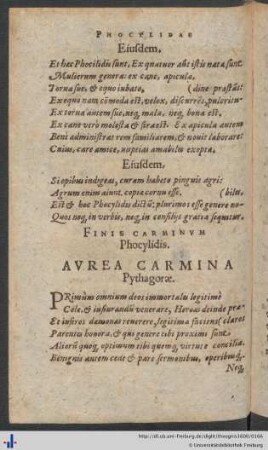 PHOCYLIDAE
Eiusdem.
Et hoc Phocilidis sunt, Ex quatuor aũt istis nata sunt
Mulierum genera: ex cane, apicula,
Torua sue, & equo iubato, (dine præstãs:
Ex equo nam cõmoda est, velox, discurrẽs, pulcritu-
Ex torua autem sue, neq, mala, neq, bona est,
Ex cane verò molesta & fera est: Ex apicula autem
Beni administrat rem familiarem, & nouit laborare:
Cuius, care amice, nuptias amabiles expeta,
Eiusdem.
Si opibus indiges, curam habeto pinguis agri:
Agrum enim aiunt, copiæ cornu esse. (biles.
Est & hoc Phocylidis dictũ: plurimos esse genere no-
Quos neq, in verbis, neq, in consilijs gratia sequitur.
FINIS CARMINVM
Phocylidis.
AVREA CARMINA
Pythagoræ.
PRimùm omnium deos immortales legitimè
Cole, & iusiurandũ venerare, Heroas deinde præ-
Et inferos dæmonas reuerere, legitima faciens: (claros
Parentes honora, & qui genere tibi proximi sunt.
Aliorũ quoq, optimum tibi quemq, virtute concilia.
Benignis autem cede & pare sermonibus, operibusq́;
Neq;
http://dl.ub.uni-freiburg.de/diglit/theognis1600/0166
© Universitätsbibliothek Freiburg